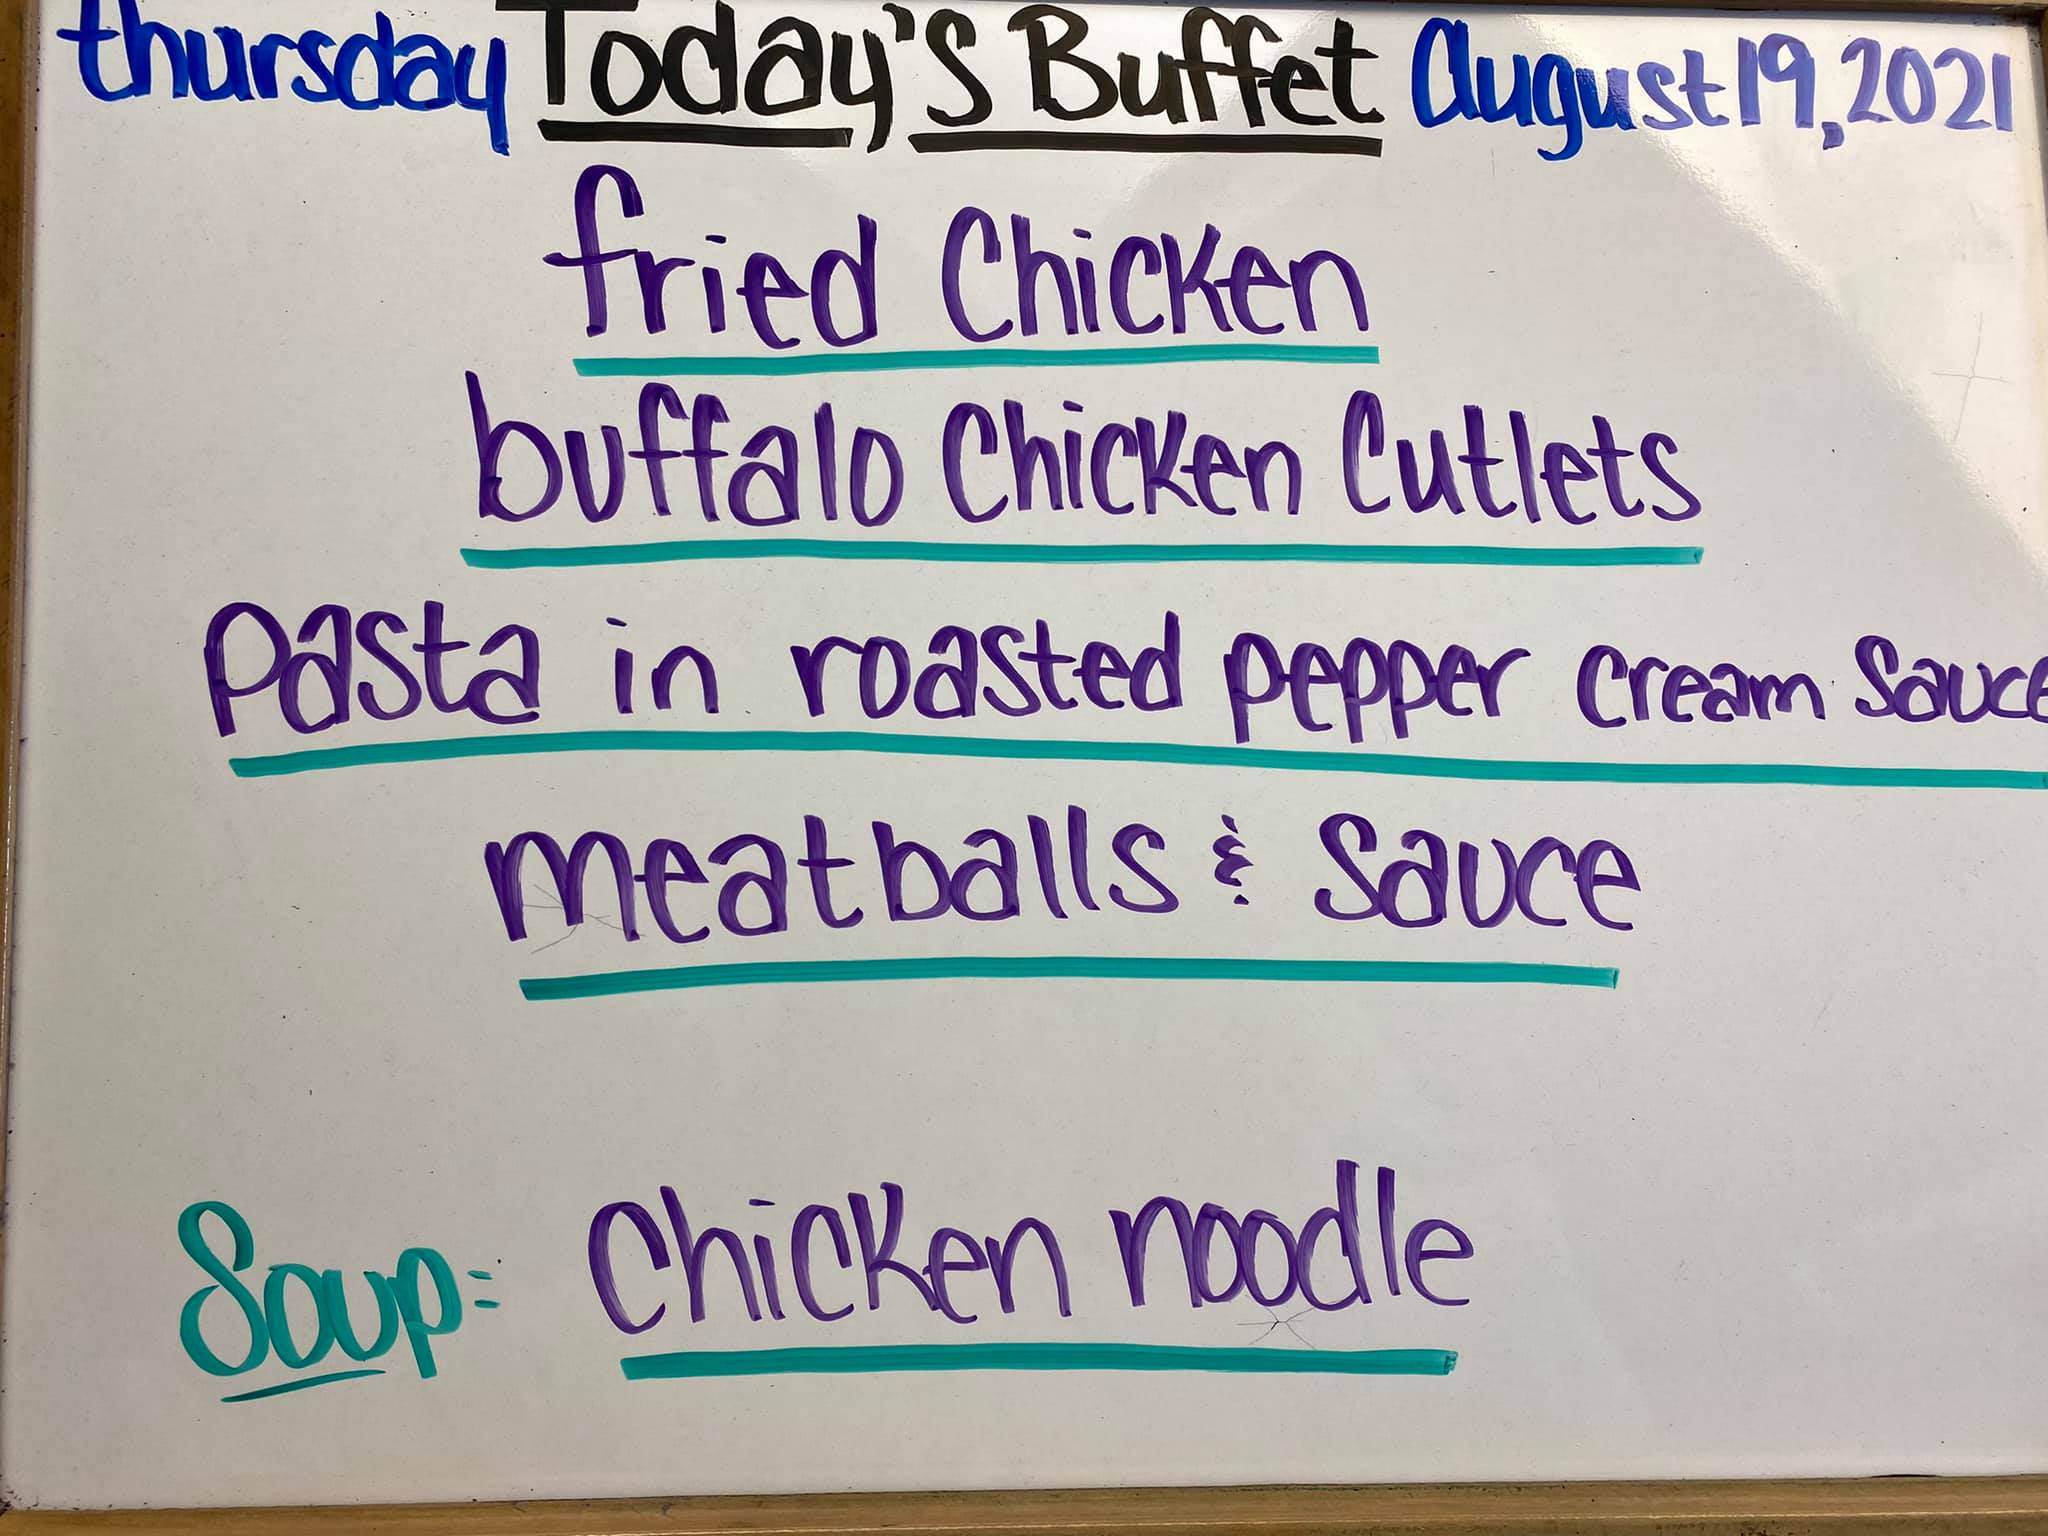 thursday Today's Buffet august 19, 2021
fried Chicken
buffalo Chicken Cutlets
pasta in roasted pepper cream Sauce
meatballs & Sauce
Soup: Chicken noodle